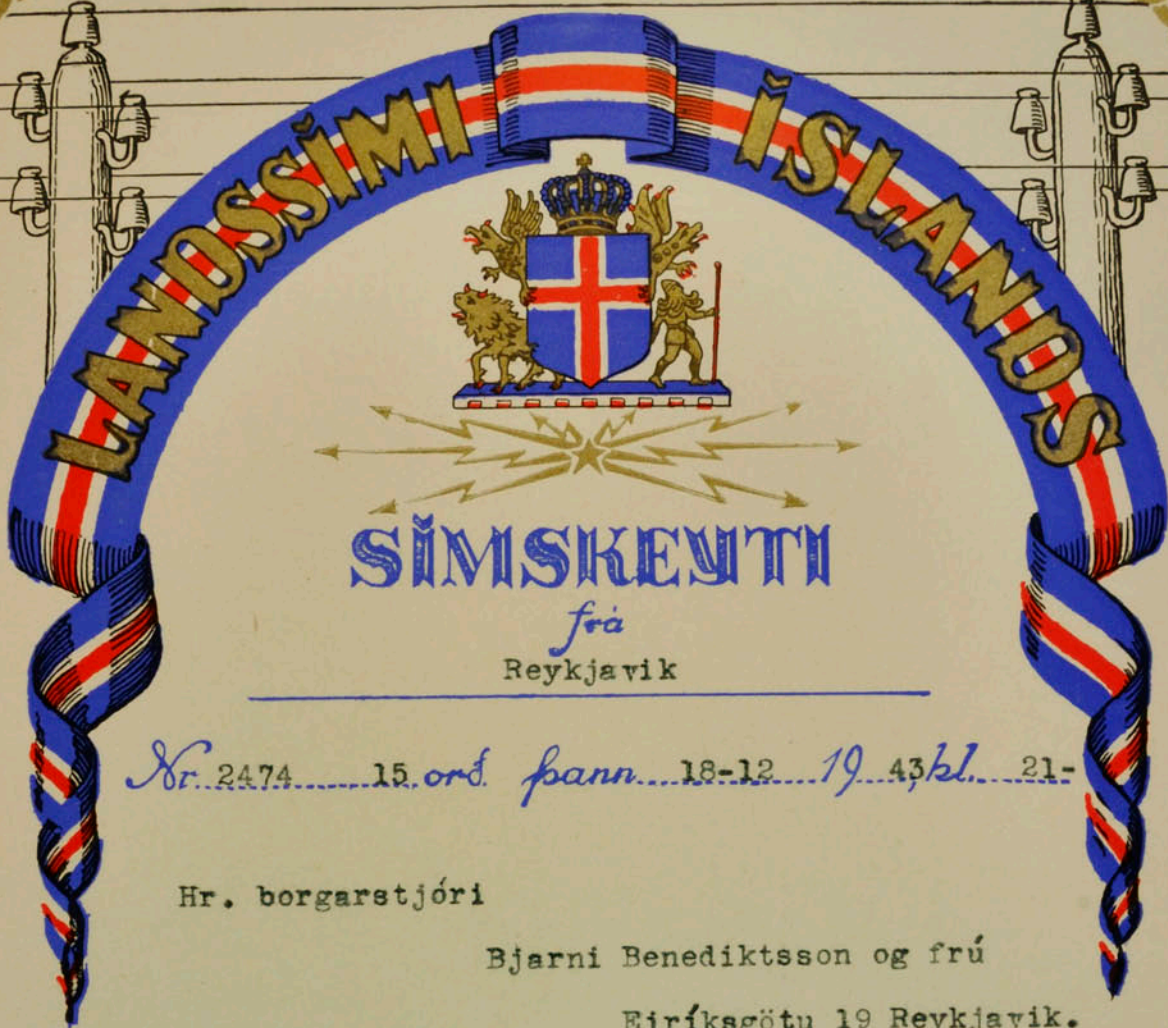 LANDSSÍMI ÍSLANDS
SÍMSKEYTI
frá
Reykjavik
Nr. 2474 15 orð. þann 18-12 19 43, kl. 21-
Hr. borgarstjóri
Bjarni Benediktsson og frú
Eiríksgötu 19 Reykjavik.